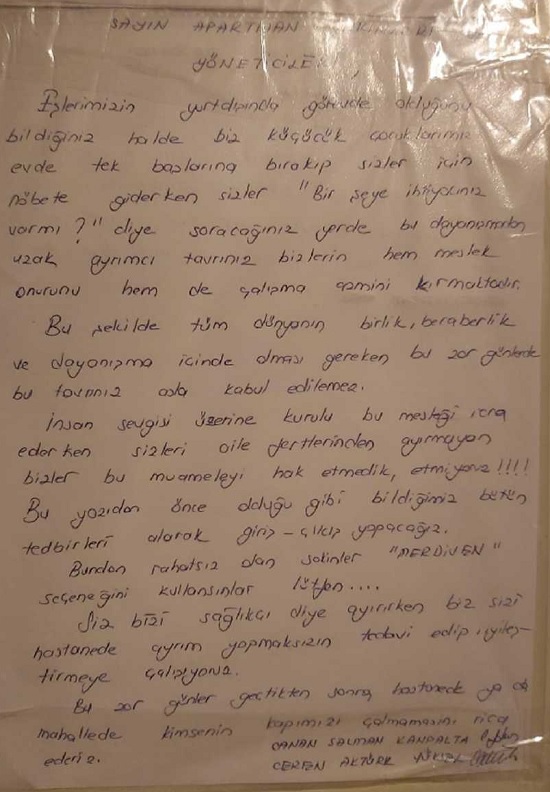 SAYIN APARTMAN
YÖNETİCİLERİ,
Eşlerimizin yurtdışında görevde olduğunu
bildiğiniz halde biz küçücük çocuklarımızı
evde tek başlarına bırakıp sizler için
nöbete giderken sizler "Bir şeye ihtiyacınız
varmı?" diye soracağınız yerde bu dayanışmadan
uzak ayrımcı tavrınız bizlerin hem meslek
onurunu hem de çalışma azmini kırmaktadır.
Bu şekilde tüm dünyanın birlik, beraberlik
ve dayanışma içinde olması gereken bu zor günlerde
bu tavrınız asla kabul edilemez.
İnsan sevgisi üzerine kurulu bu mesleği icra
ederken sizleri aile fertlerinden ayırmayan
bizler bu muameleyi hak etmedik, etmiyoruz!!!!
Bu yazıdan önce olduğu gibi bildiğimiz bütün
tedbirleri alarak giriş-çıkış yapacağız.
Bundan rahatsız olan sakinler "MERDİVEN"
seçeneğini kullansınlar lütfen....
Siz bizi sağlıkçı diye ayırırken biz sizi
hastanede ayrım yapmaksızın tedavi edip iyileş-
tirmeye çalışıyoruz.
Bu zor günler geçtikten sonra hastanede ya da
mahallede kimsenin kapımızı çalmamasını rica
ederiz. CANAN SALMAN KANDALTA
CEREN AKTÜRK